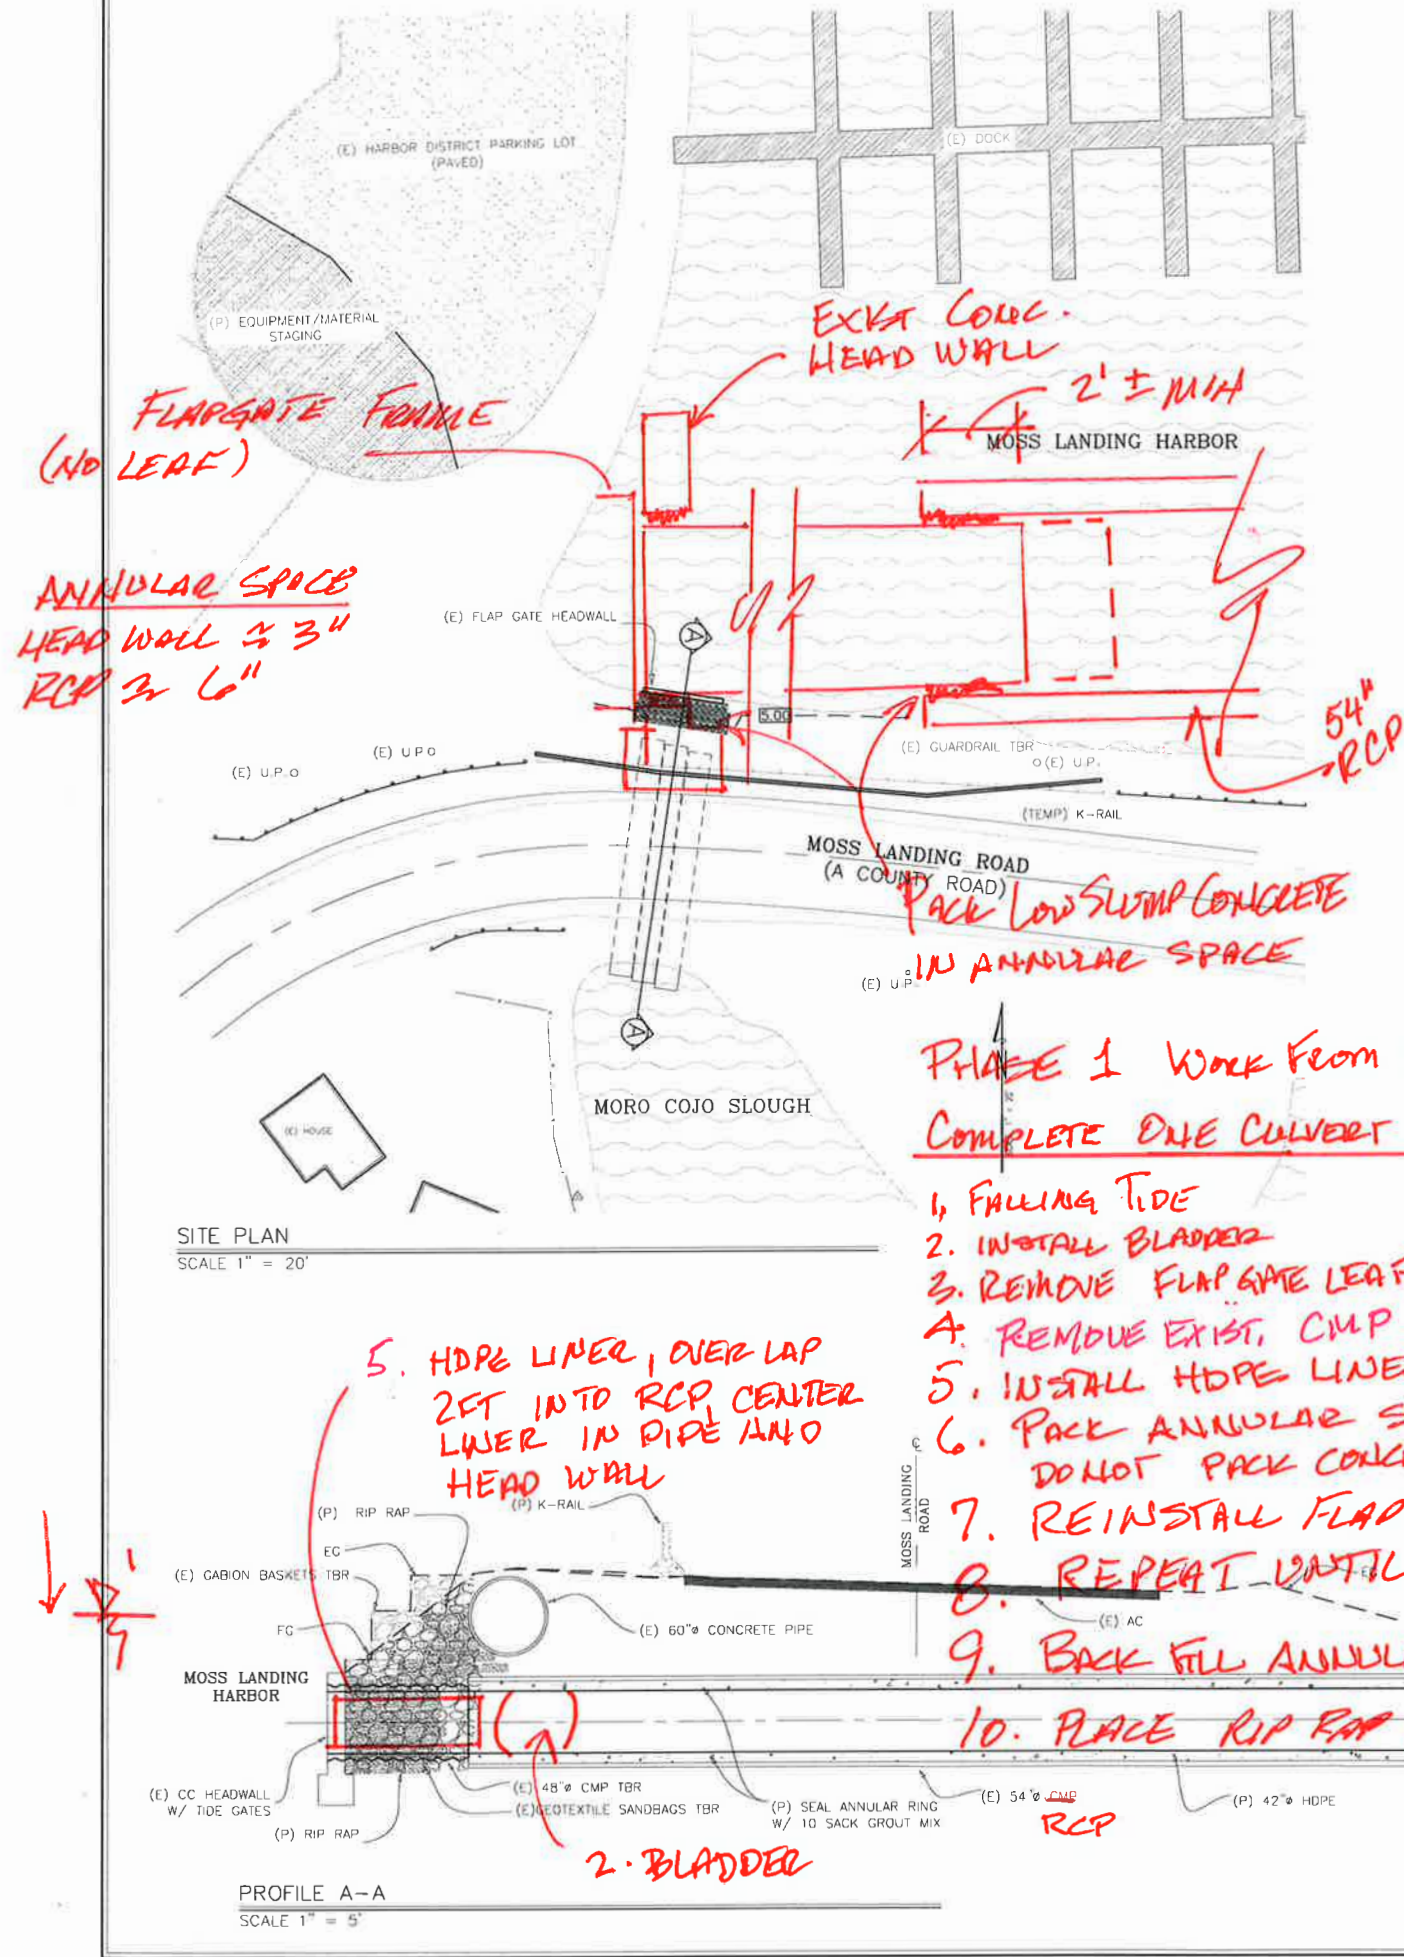 (E) HARBOR DISTRICT PARKING LOT
(PAVED)
(E) DOCK
(P) EQUIPMENT/MATERIAL
STAGING
EXIST CONC.
HEAD WALL
2' ± MIN
MOSS LANDING HARBOR
FLAPGATE FRAME
(NO LEAF)
ANNULAR SPACE
HEAD WALL ≈ 3"
RCP ≈ 6"
(E) FLAP GATE HEADWALL
A
5.00
54"
RCP
(E) GUARDRAIL TBR
(E) U.P.
(E) U P
(E) U.P.
(TEMP) K-RAIL
MOSS LANDING ROAD
(A COUNTY ROAD)
PACK LOW SLUMP CONCRETE
IN ANNULAR SPACE
(E) U.P.
A
MORO COJO SLOUGH
(E) HOUSE
PHASE 1 WORK FROM
COMPLETE ONE CULVERT
1. FALLING TIDE
2. INSTALL BLADDER
3. REMOVE FLAP GATE LEAF
4. REMOVE EXIST. CMP
5. INSTALL HDPE LINE
6. PACK ANNULAR S
DO NOT PACK CONC
7. REINSTALL FLAP
8. REPEAT UNTIL
9. BACK FILL ANNUL
10. PLACE RIP RAP
SITE PLAN
SCALE 1" = 20'
5. HDPE LINER, OVER LAP
2FT INTO RCP, CENTER
LINER IN PIPE AND
HEAD WALL
(P) RIP RAP
(P) K-RAIL
EG
(E) GABION BASKETS TBR
FG
(E) 60"ø CONCRETE PIPE
MOSS LANDING
ROAD
℄
(E) AC
MOSS LANDING
HARBOR
(E) CC HEADWALL
W/ TIDE GATES
(P) RIP RAP
(E) 48"ø CMP TBR
(E)GEOTEXTILE SANDBAGS TBR
(P) SEAL ANNULAR RING
W/ 10 SACK GROUT MIX
(E) 54"ø CMP
RCP
(P) 42"ø HDPE
2. BLADDER
PROFILE A-A
SCALE 1" = 5'